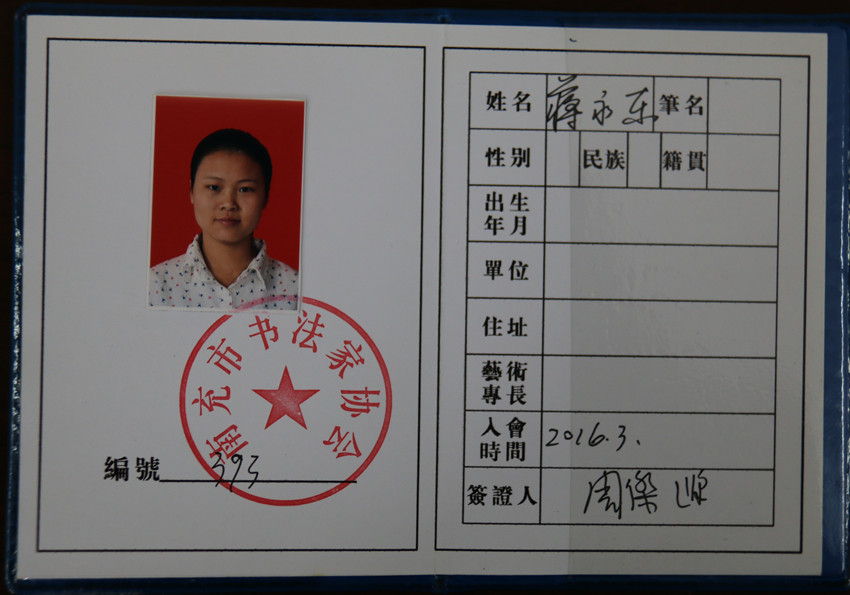 南充市书法家协会
編號 393
姓名 蔣永东 筆名
性別 民族 籍貫
出生年月
單位
住址
藝術專長
入會時間 2016.3.
簽證人 周傑